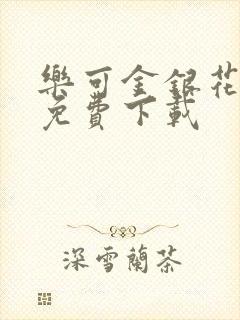 樂可金銀花
免費下載
深雪蘭茶